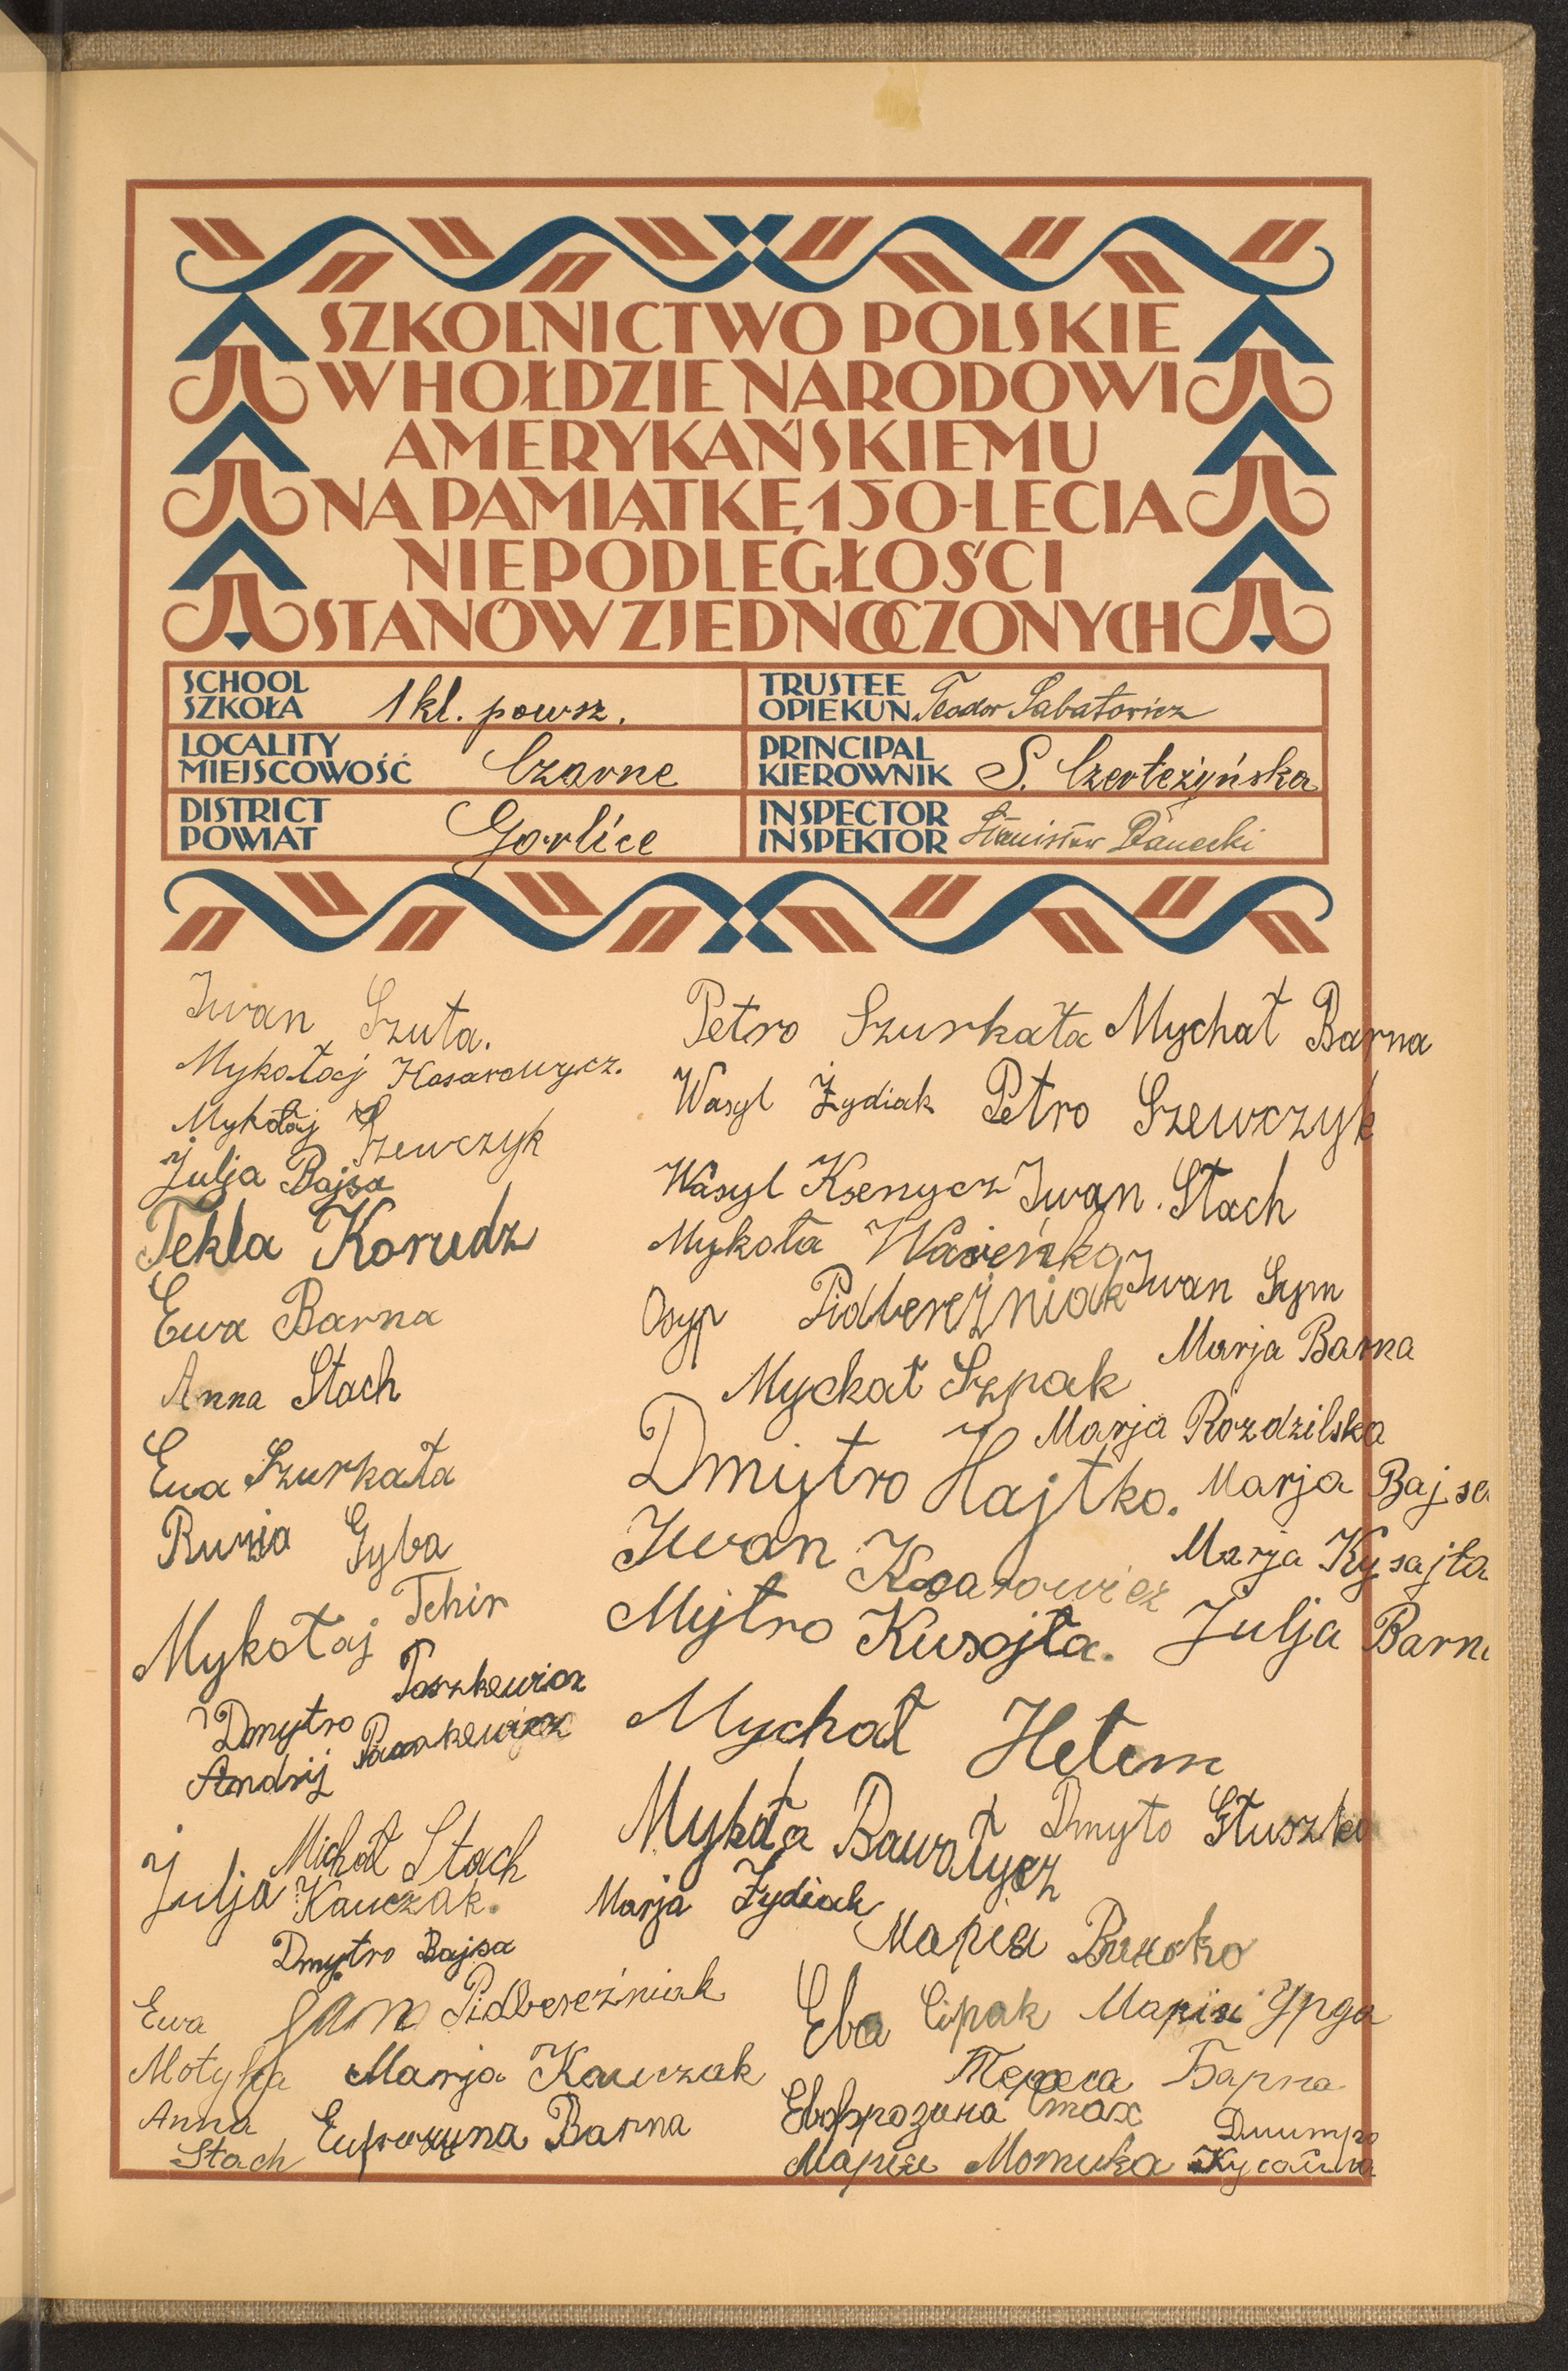 SZKOLNICTWO POLSKIE
W HOŁDZIE NARODOWI
AMERYKAŃSKIEMU
NA PAMIĄTKĘ 150-LECIA
NIEPODLEGŁOŚCI
STANÓW ZJEDNOCZONYCH
SCHOOL
SZKOŁA 1 kl. powsz.
TRUSTEE
OPIEKUN Teodor Sabatowicz
LOCALITY
MIEJSCOWOŚĆ Czarne
PRINCIPAL
KIEROWNIK S. Czerteżyńska
DISTRICT
POWIAT Gorlice
INSPECTOR
INSPEKTOR Stanisław Panecki
Iwan Szuta.
Mykołaj Kosarowycz.
Mykołaj Szewczyk
Julja Bajsa
Tekla Korudz
Ewa Barna
Anna Stach
Ewa Szurkała
Ruzia Gyba
Mykołaj Tchir
Dmytro Paszkewicz
Andrij
Michał Stach
Julja Kauczak.
Dmytro Bajsa
Ewa Motyka
Pidbereźniak
Marja Kauczak
Anna Stach
Eufrozyna Barna
Petro Szurkała Mychał Barna
Wasyl Żydiak Petro Szewczyk
Wasyl Ksenycz Iwan Stach
Mykoła Waseńko
Osyp Pidbereźniak Iwan Sym
Marja Barna
Mychał Szpak
Marja Rozdzilska
Dmytro Hajtko. Marja Bajsa
Iwan Kosarowicz Marja Kysajła
Mytro Kusajła. Julja Barna
Mychał Hetem
Mykoła Bawołycz Dmyto Głuszko
Marja Żydiak
Марія
Ева Cipak Марія Урда
Тереса Барна
Евфрозина Стах
Дмитро Кусайла
Марія Мотика